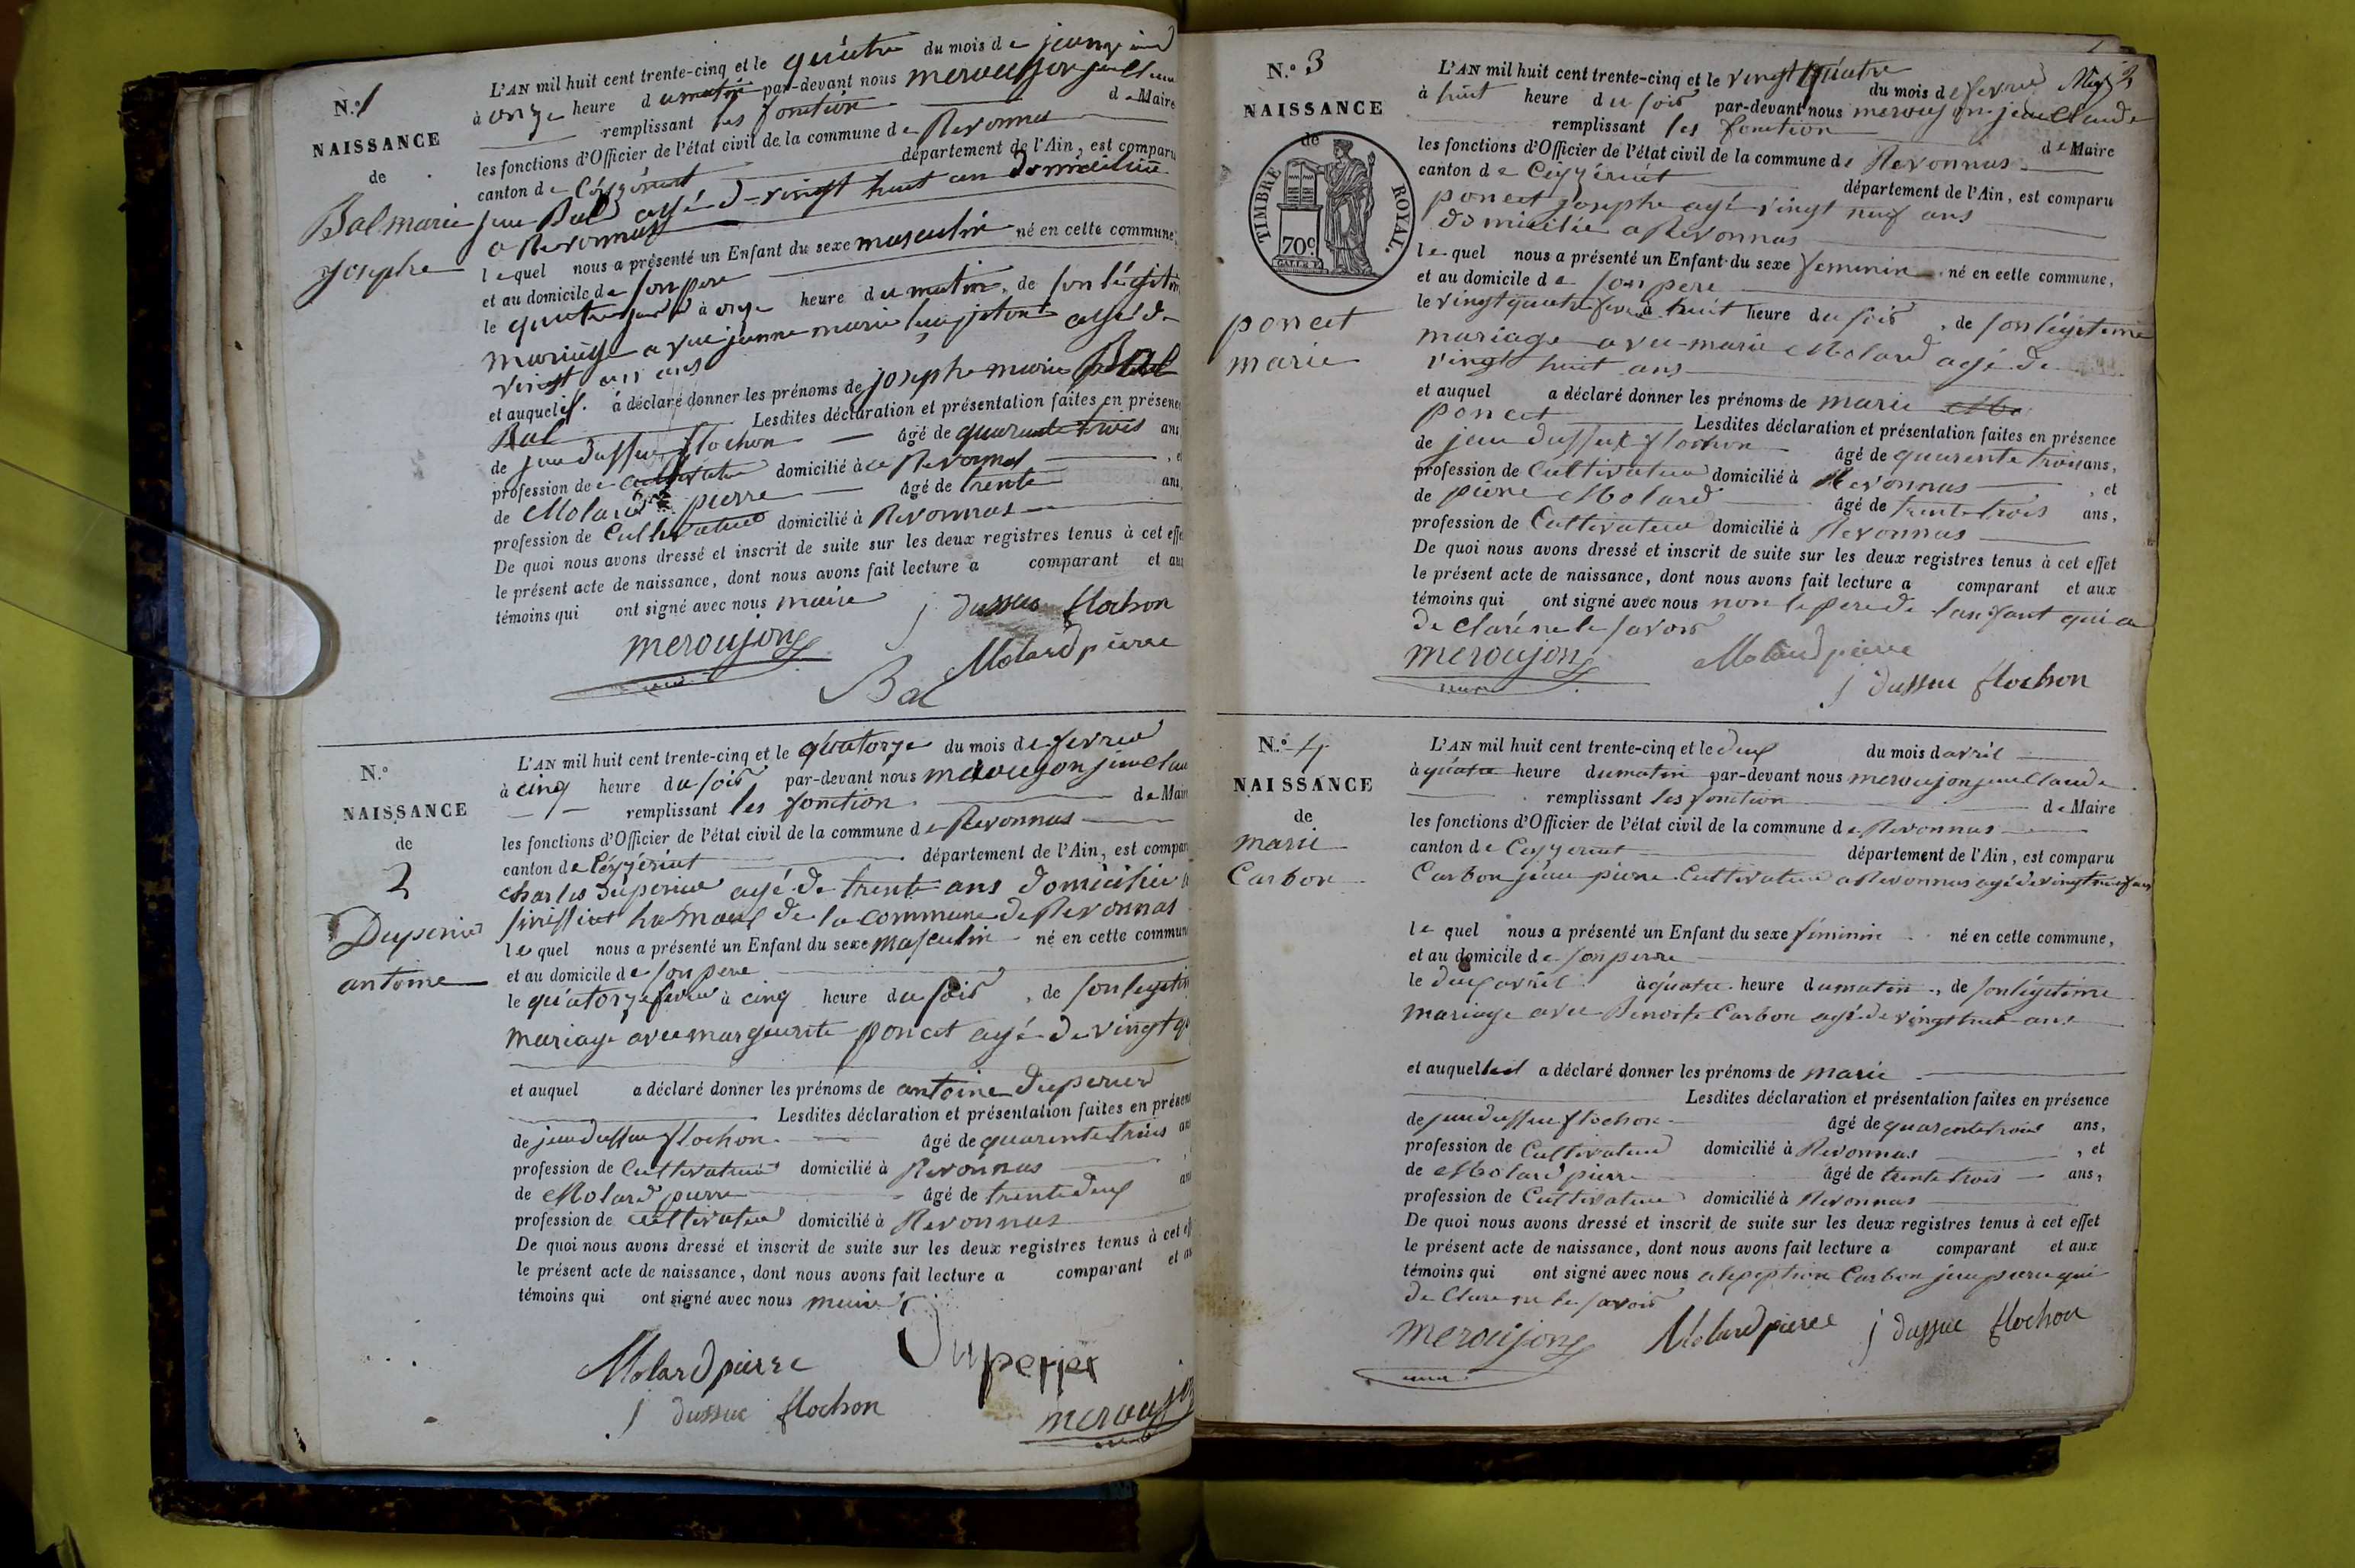 N.º 1
NAISSANCE
de
Bal marie
josephe
L'AN mil huit cent trente-cinq et le quatre du mois de
à onze heure du matin par-devant nous meroujon
remplissant les fonction de Maire
les fonctions d'Officier de l'état civil de la commune de Revonnas
canton de Ceyzériat département de l'Ain, est comparu
jean Bal agé de vingt huit an domicilié
a Revonnas
lequel nous a présenté un Enfant du sexe masculin né en cette commune,
et au domicile de son pere
le quatre à onze heure du matin, de son légitime
mariage avec jeanne marie agé de
vingt ans
et auquel il a déclaré donner les prénoms de josephe marie
Bal Lesdites déclaration et présentation faites en présence
de jean dussue flochon âgé de quarente trois ans
profession de cultivateur domicilié à Revonnas
de Molard pierre âgé de trente ans
profession de Cultivateur domicilié à Revonnas
De quoi nous avons dressé et inscrit de suite sur les deux registres tenus à cet effet
le présent acte de naissance, dont nous avons fait lecture a comparant et aux
témoins qui ont signé avec nous maire
j dussue flochon
meroujon
Molard pierre
Bal
N.º
NAISSANCE
de
2
Duperier
antoine
L'AN mil huit cent trente-cinq et le quatorze du mois de fevrier
à cinq heure du soir par-devant nous meroujon jean
remplissant les fonction de Maire
les fonctions d'Officier de l'état civil de la commune de Revonnas
canton de Ceyzériat département de l'Ain, est comparu
Charles Duperier agé de trente ans domicilié a
hamaux de la commune de Revonnas
lequel nous a présenté un Enfant du sexe masculin né en cette commune
et au domicile de son pere
le quatorze fevrier à cinq heure du soir, de son legitime
mariage avec marguerite poncet agé de vingt
et auquel a déclaré donner les prénoms de antoine Duperier
Lesdites déclaration et présentation faites en présence
de jean dussue flochon âgé de quarente trois ans
profession de Cultivateur domicilié à Revonnas
de Molard pierre âgé de trente deux ans
profession de cultivateur domicilié à Revonnas
De quoi nous avons dressé et inscrit de suite sur les deux registres tenus à cet effet
le présent acte de naissance, dont nous avons fait lecture a comparant et aux
témoins qui ont signé avec nous maire
Molard pierre Duperier
j dussue flochon meroujon
N.º 3
NAISSANCE
de
TIMBRE ROYAL.
70c
poncet
marie
L'AN mil huit cent trente-cinq et le vingt quatre du mois de fevrier
à huit heure du soir par-devant nous meroujon jean Claude
remplissant les fonction de Maire
les fonctions d'Officier de l'état civil de la commune de Revonnas
canton de Ceyzériat département de l'Ain, est comparu
poncet josephe agé vingt neuf ans
domicilié a Revonnas
lequel nous a présenté un Enfant du sexe feminin né en cette commune,
et au domicile de son pere
le vingt quatre fevrier à huit heure du soir, de son légitime
mariage avec marie Molard agé de
vingt huit ans
et auquel a déclaré donner les prénoms de marie
poncet Lesdites déclaration et présentation faites en présence
de jean dussue flochon âgé de quarente trois ans,
profession de Cultivateur domicilié à Revonnas, et
de pierre Molard âgé de trente trois ans,
profession de Cultivateur domicilié à Revonnas
De quoi nous avons dressé et inscrit de suite sur les deux registres tenus à cet effet
le présent acte de naissance, dont nous avons fait lecture a comparant et aux
témoins qui ont signé avec nous non le pere de lanfant qui a
declaré ne le savoir
meroujon Molard pierre
j dussue flochon
N.º 4
NAISSANCE
de
marie
Carbon
L'AN mil huit cent trente-cinq et le deux du mois davril
à quatre heure du matin par-devant nous meroujon jean Claude
remplissant les fonction de Maire
les fonctions d'Officier de l'état civil de la commune de Revonnas
canton de Ceyzeriat département de l'Ain, est comparu
Carbon jean pierre Cultivateur a Revonnas agé de vingt neuf ans
lequel nous a présenté un Enfant du sexe féminin né en cette commune,
et au domicile de son perre
le deux avril à quatre heure du matin, de son légitime
mariage avec Benoite Carbon agé de vingt huit ans
et auquel a déclaré donner les prénoms de marie
Lesdites déclaration et présentation faites en présence
de jean dussue flochon âgé de quarente trois ans,
profession de Cultivateur domicilié à Revonnas, et
de Molard pierre âgé de trente trois ans,
profession de Cultivateur domicilié à Revonnas
De quoi nous avons dressé et inscrit de suite sur les deux registres tenus à cet effet
le présent acte de naissance, dont nous avons fait lecture a comparant et aux
témoins qui ont signé avec nous Carbon jean pierre qui
declare ne le savoir
meroujon Molard pierre j dussue flochon